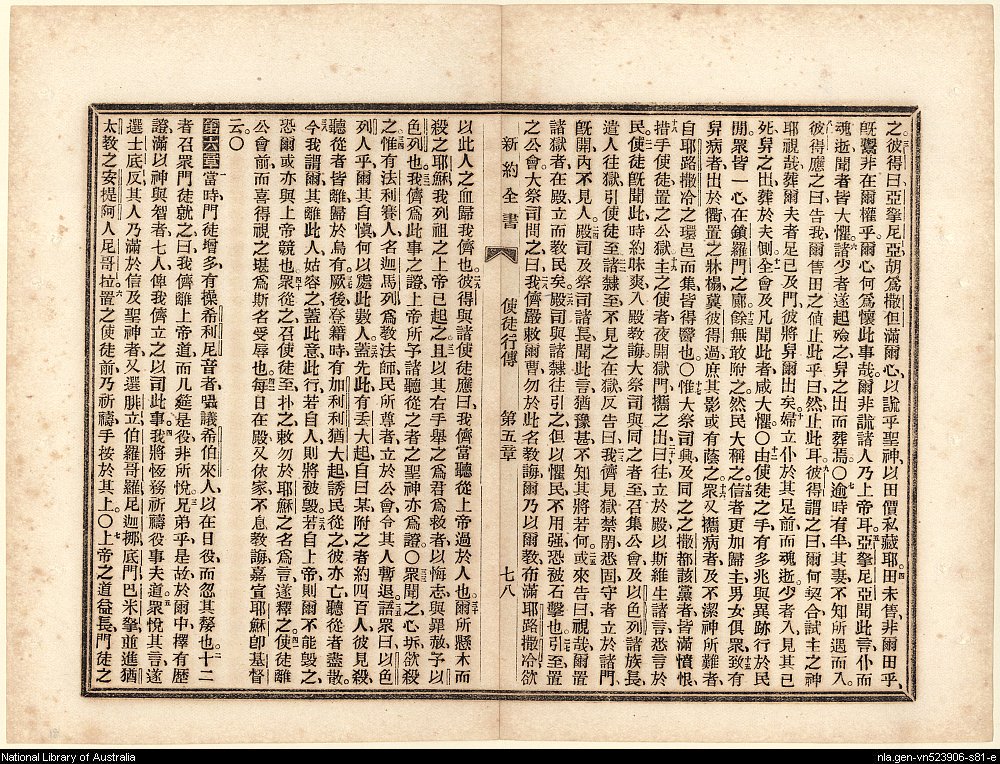 之彼得曰亞拏尼亞胡爲撒但滿爾心以謊乎聖神以田價私藏耶田未售非爾田乎
旣鬻非在爾權乎爾心何爲懷此事哉爾非謊諸人乃上帝耳亞拏尼亞聞此言仆而
魂逝聞者皆大懼諸少者遂起殮之舁之出而葬焉〇逾時有半其妻不知所遇而入
彼得應之曰吿我爾售田之値止此乎曰然止此耳彼得謂之曰爾何契合試主之神
耶視哉葬爾夫者足已及門彼將舁爾出矣婦立仆於其足前而魂逝少者入見其已
死舁之出葬於夫側全會及凡聞此者咸大懼〇由使徒之手有多兆與異跡行於民
閒衆皆一心在鎖羅門之廊餘無敢附之然民大稱之信者更加歸主男女俱衆致有
舁病者出於衢置之牀榻冀彼得過庶其影或有蔭之衆又攜病者及不潔神所難者
自耶路撒冷之環邑而集皆得醫也〇惟大祭司興及同之之撒都該黨者皆滿憤恨
措手使徒置之公獄主之使者夜開獄門攜之出曰往立於殿以斯維生諸言悉言於
民使徒旣聞此時約昧爽入殿敎誨大祭司與同之者至召集公會及以色列諸族長
遣人往獄引使徒至諸隸至不見之在獄反吿曰我儕見獄禁閉恐固守者立於諸門
旣開內不見人殿司及祭司諸長聞此言猶豫甚不知其將若何或來吿曰視哉爾置
諸獄者在殿立而敎民矣殿司與諸隸往引之但以懼民不用强恐被石擊也引至置
之公會大祭司問之曰我儕嚴敕爾曹勿於此名敎誨爾乃以爾敎布滿耶路撒冷欲
新約全書 使徒行傳 第五章 七八
以此人之血歸我儕也彼得與諸使徒應曰我儕當聽從上帝過於人也爾所懸木而
殺之耶穌我列祖之上帝已起之且以其右手舉之爲君爲救者以悔志與罪赦予以
色列也我儕爲此事之證上帝所予諸聽從之者之聖神亦爲證〇衆聞之心坼欲殺
之惟有法利賽人名迦馬列爲敎法師民所尊者立於公會令其人暫退語衆曰以色
列人乎爾其自愼何以處此數人蓋先此有丟大起自曰某附之者約四百人彼見殺
聽從者皆離歸於烏有厥後登籍時有加利利猶大起誘民從之彼亦亡聽從者盡散
今我謂爾其離此人姑容之蓋此意此行若自人則將被毀若自上帝則爾不能毀之
恐爾或亦與上帝競也衆從之召使徒至扑之敕勿於耶穌之名爲言遂釋之使徒離
公會前而喜得視之堪爲斯名受辱也每日在殿又依家不息敎誨嘉宣耶穌卽基督
云〇
第六章當時門徒增多有操希利尼音者囁議希伯來人以在日役而忽其嫠也十二
者召衆門徒就之曰我儕離上帝道而几筵是役非所悅兄弟乎是故於爾中擇有歷
證滿以神與智者七人俾我儕立之以司此事我將恆務祈禱役事夫道衆悅其言遂
選士底反其人乃滿於信及聖神者又選腓立伯羅哥羅尼迦挪底門巴米拏並進猶
太敎之安提阿人尼哥拉置之使徒前乃祈禱手按於其上〇上帝之道益長門徒之
National Library of Australia
nla.gen-vn523906-s81-e